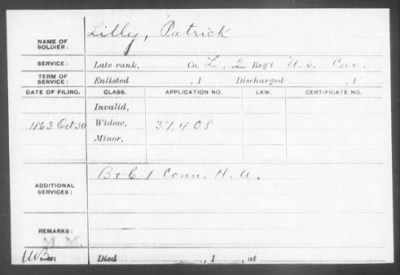 NAME OF SOLDIER: Lilly, Patrick
SERVICE: Late rank, Co. L, 2 Reg't U.S. Cav.
TERM OF SERVICE: Enlisted , 1 Discharged , 1
DATE OF FILING. CLASS. APPLICATION NO. LAW. CERTIFICATE NO.
Invalid,
1863 Oct 30 Widow, 37,408
Minor,
ADDITIONAL SERVICES: B & C 1 Conn. H. A.
REMARKS:
Died , 1 , at